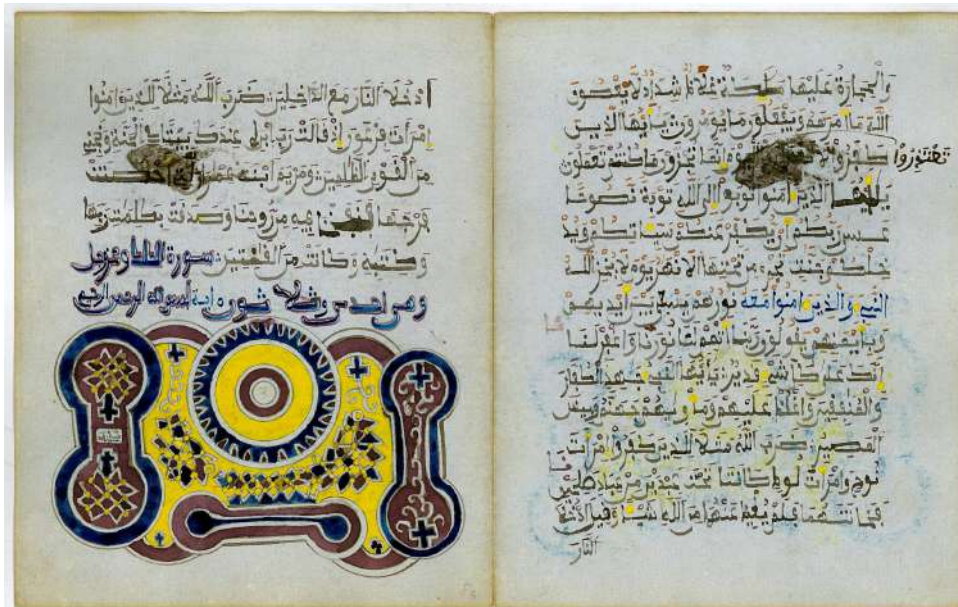 والحجارة عليها ملئكة غلاظ شداد لا يعصون
الله ما امرهم ويفعلون ما يومرون يايها الذين
تعتذروا
كفروا لا اليوم انما تجزون ما كنتم تعملون
الذين امنوا توبوا الى الله توبة نصوحا
عسى ربكم ان يكفر عنكم سياتكم ويد
خلكم جنت تجرى من تحتها الانهر يوم لا يخزى الله
النبى والذين امنوا معه نورهم يسعى بين ايديهم
وبايمنهم يقولون ربنا اتمم لنا نورنا واغفر لنا
انك على كل شىء قدير يايها النبى جهد الكفار
والمنفقين واغلظ عليهم وماويهم جهنم وبيس
المصير ضرب الله مثلا للذين كفروا امرات
نوح وامرات لوط كانتا تحت عبدين من عبادنا صلحين
فخانتهما فلم يغنيا عنهما من الله شيا وقيل ادخلا
النار
ادخلا النار مع الداخلين ضرب الله مثلا للذين امنوا
امرات فرعون اذ قالت رب ابن لى عندك بيتا فى الجنة ونجنى
من القوم الظلمين ومريم ابنت عمران التى احصنت
فرجها فنفخنا فيه من روحنا وصدقت بكلمت ربها
وكتبه وكانت من القنتين سورة
وهى اية بسم الله الرحمن الرحيم